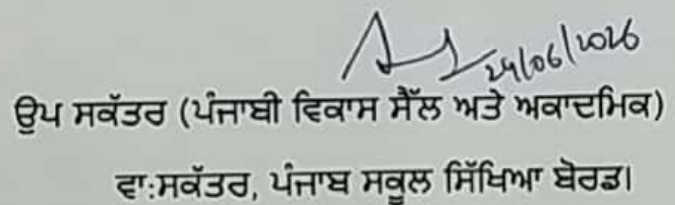 24/06/2026
ਉਪ ਸਕੱਤਰ (ਪੰਜਾਬੀ ਵਿਕਾਸ ਸੈੱਲ ਅਤੇ ਅਕਾਦਮਿਕ)
ਵਾ:ਸਕੱਤਰ, ਪੰਜਾਬ ਸਕੂਲ ਸਿੱਖਿਆ ਬੋਰਡ।